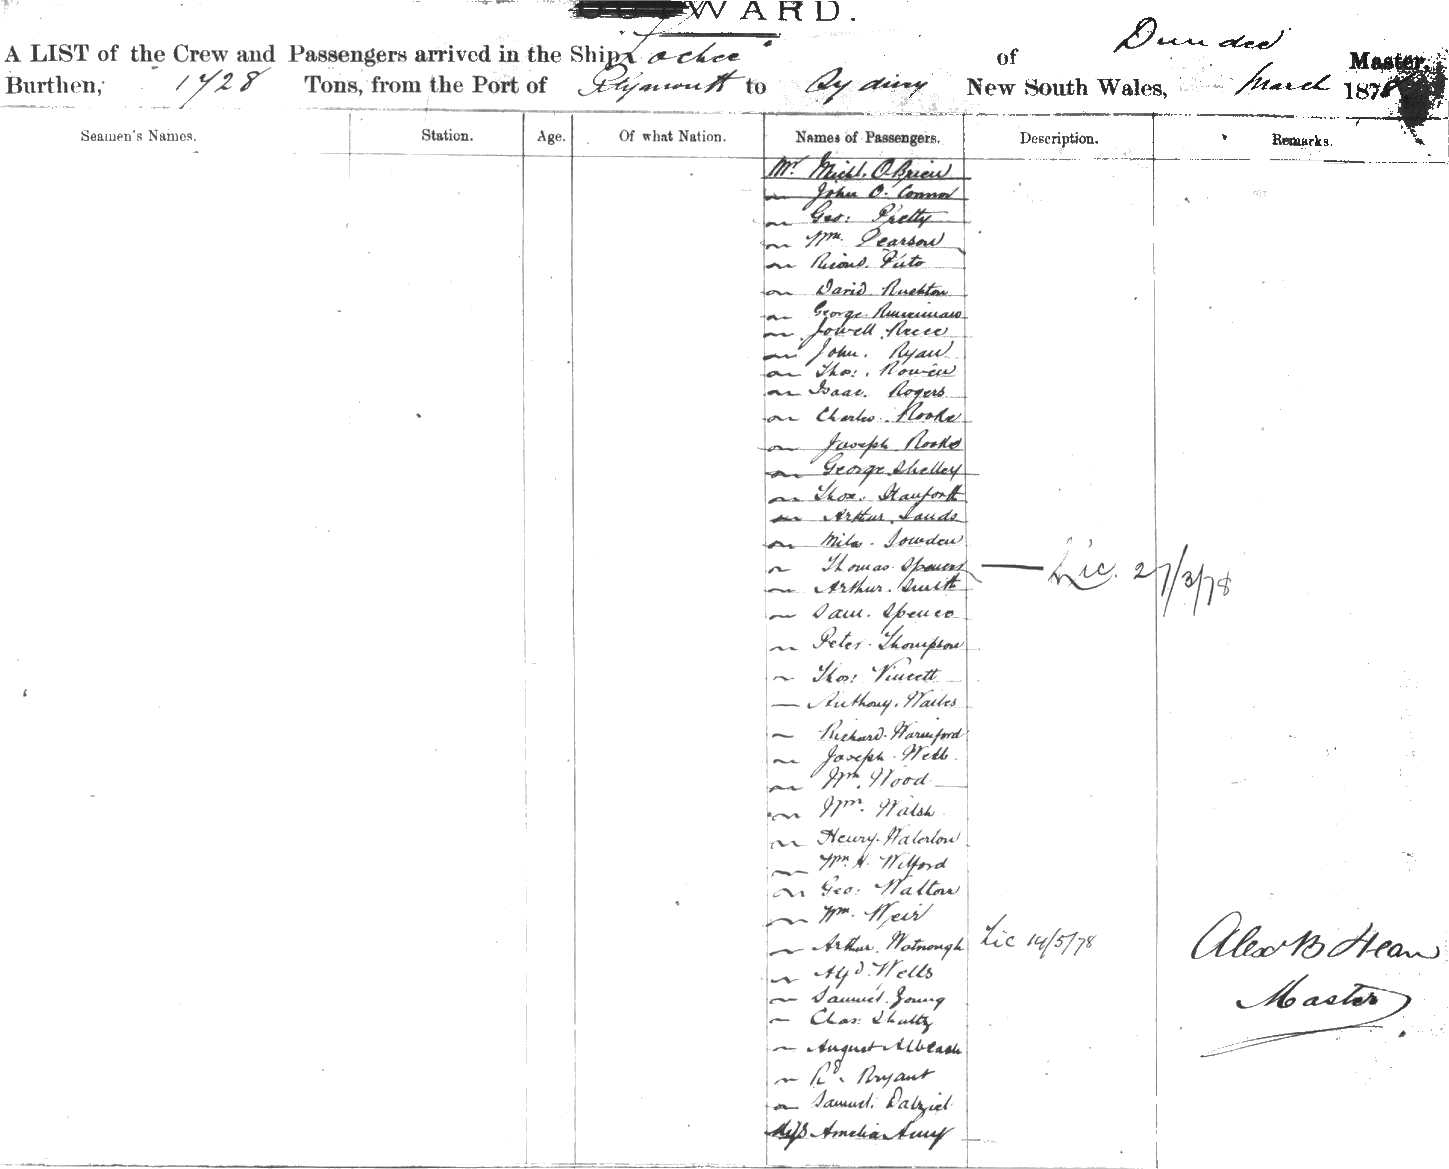 WARD.
A LIST of the Crew and Passengers arrived in the Ship Lochee of Dundee Master,
Burthen, 1728 Tons, from the Port of Plymouth to Sydney New South Wales, March 1878
Seamen's Names. Station. Age. Of what Nation. Names of Passengers. Description. Remarks.
Mr. Michl. O'Brien
" John O. Connor
" Geo: Pretty
" Wm. Pearson
" Pinto
" David Rushton
" George
" Jowell Reece
" John. Ryan
" Thos: Rowen
" Isaac. Rogers
" Charles. Rooke
" Joseph Rooke
" George Shelley
" Thos. Staniforth
" Arthur. Sands
" Miles. Sowden
" Thomas Spencer — Lic. 27/3/78
" Arthur. Smith
" Saml. Spence
" Peter Thompson
" Thos: Vincett
— Anthony. Wailes
" Richard. Warnford
" Joseph Webb.
" Wm. Wood
" Wm. Walsh
" Henry. Waterlow
" Wm. H. Wilford
" Geo: Walton
" Wm. Weir
" Arthur. Watmough Lic 14/5/78 Alexr B Hean
" Alfd. Wells
" Samuel. Young Master
" Chas: Shultz
" August
" Rd. Bryant
" Samuel. Dalziel
Miss Amelia Amy